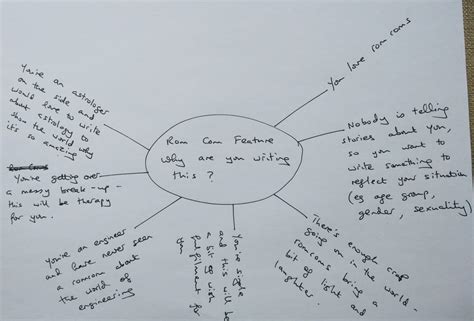 Rom Com Feature
Why are you writing
this?
You love rom coms
Nobody is telling
stories about you,
so you want to
write something to
reflect your situation
(eg age group,
gender, sexuality)
There's enough crap
going on in the world -
romcoms bring a
bit of light and
laughter.
You're single
and this will be
a bit of wish
fulfilment for
You're an engineer
and have never seen
a romcom about
the world of
engineering
You're getting over
a messy break-up -
this will be therapy
for you.
You're an astrologer
on the side and
would love to write
about astrology to
show the world why
it's so amazing